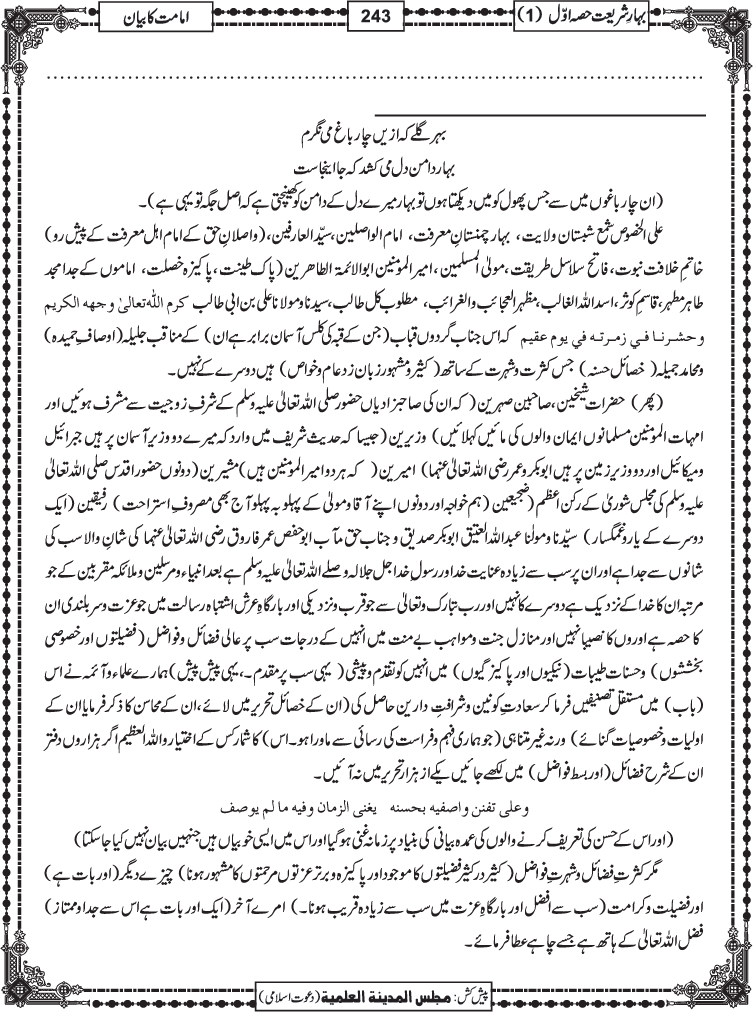 بہار شریعت حصہ اوّل (1)
243
امامت کا بیان
بہر گلے کہ ازیں چار باغ می نگرم
بہار دامن دل می کشد کہ جا اینجاست
(ان چار باغوں میں سے جس پھول کو میں دیکھتا ہوں تو بہار میرے دل کے دامن کو کھینچتی ہے کہ اصل جگہ تو یہی ہے)۔
علی الخصوص شمع شبستان ولایت، بہار چمنستانِ معرفت، امام الواصلین، سیّد العارفین، (واصلانِ حق کے امام اہل معرفت کے پیش رو)
خاتمِ خلافت نبوت، فاتح سلاسل طریقت، مولیٰ المسلمین، امیر المؤمنین ابوالائمۃ الطاھرین (پاک طینت، پاکیزہ خصلت، اماموں کے جد امجد
طاہر مطہر، قاسمِ کوثر، اسداللہ الغالب، مظہر العجائب والغرائب، مطلوب کل طالب، سیدنا و مولانا علی بن ابی طالب کرم اللہ تعالیٰ وجھہ الکریم
وحشرنا فی زمرتہ فی یوم عقیم کہ اس جناب گردوں قباب (جن کے قبہ کی کلس آسمان برابر ہے ان) کے مناقب جلیلہ (اوصافِ حمیدہ)
ومحامد جمیلہ (خصائل حسنہ) جس کثرت و شہرت کے ساتھ (کثیر و مشہور زبان زد عام و خواص) ہیں دوسرے کے نہیں۔
(پھر) حضرات شیخین، صاحبین صہرین (کہ ان کی صاحبزادیاں حضور صلی اللہ تعالیٰ علیہ وسلم کے شرفِ زوجیت سے مشرف ہوئیں اور
امہات المؤمنین مسلمانوں ایمان والوں کی مائیں کہلائیں) وزیرین (جیسا کہ حدیث شریف میں وارد کہ میرے دو وزیر آسمان پر ہیں جبرائیل
ومیکائیل اور دو وزیر زمین پر ہیں ابوبکر و عمر رضی اللہ تعالیٰ عنہما) امیرین (کہ ہر دو امیر المؤمنین ہیں) مشیرین (دونوں حضور اقدس صلی اللہ تعالیٰ
علیہ وسلم کی مجلس شوریٰ کے رکن اعظم (ضجیعین (ہم خواجہ اور دونوں اپنے آقا و مولیٰ کے پہلو بہ پہلو آج بھی مصروفِ استراحت) رفیقین (ایک
دوسرے کے یار و غمگسار) سیّدنا و مولنا عبداللہ العتیق ابوبکر صدیق و جناب حق مآب ابوحفص عمر فاروق رضی اللہ تعالیٰ عنہما کی شانِ والا سب کی
شانوں سے جدا ہے اور ان پر سب سے زیادہ عنایت خدا اور رسول خدا جل جلالہ و صلے اللہ تعالیٰ علیہ وسلم ہے بعد انبیاء و مرسلین و ملائکہ مقربین کے جو
مرتبہ ان کا خدا کے نزدیک ہے دوسرے کا نہیں اور رب تبارک و تعالیٰ سے جو قرب و نزدیکی اور بارگاہِ عرش اشتباہ رسالت میں جو عزت و سربلندی ان
کا حصہ ہے اوروں کا نصیبا نہیں اور منازل جنت و مواہب بے منت میں انہیں کے درجات سب پر عالی فضائل و فواضل (فضیلتوں اور خصوصی
بخششوں) وحسنات طیبات (نیکیوں اور پاکیزگیوں) میں انہیں کو تقدم و پیشی (یہی سب پر مقدم۔، یہی پیش پیش) ہمارے علماء و آئمہ نے اس
(باب) میں مستقل تصنیفیں فرما کر سعادتِ کونین و شرافتِ دارین حاصل کی (ان کے خصائل تحریر میں لائے، ان کے محاسن کا ذکر فرمایا ان کے
اولیات و خصوصیات گنائے) ورنہ غیر متناہی (جو ہماری فہم و فراست کی رسائی سے ماورا ہو۔ اس) کا شمار کس کے اختیار واللہ العظیم اگر ہزاروں دفتر
ان کے شرح فضائل (اور بسط فواضل) میں لکھے جائیں یکے از ہزار تحریر میں نہ آئیں۔
وعلی تفنن واصفیہ بحسنہ یغنی الزمان وفیہ ما لم یوصف
(اور اس کے حسن کی تعریف کرنے والوں کی عمدہ بیانی کی بنیاد پر زمانہ غنی ہو گیا اور اس میں ایسی خوبیاں ہیں جنہیں بیان نہیں کیا جا سکتا)
مگر کثرتِ فضائل و شہرتِ فواضل (کثیر در کثیر فضیلتوں کا موجود اور پاکیزہ و برتر عزتوں مرحمتوں کا مشہور ہونا) چیزے دیگر (اور بات ہے)
اور فضیلت و کرامت (سب سے افضل اور بارگاہِ عزت میں سب سے زیادہ قریب ہونا۔) امرے آخر (ایک اور بات ہے اس سے جدا و ممتاز)
فضل اللہ تعالیٰ کے ہاتھ ہے جسے چاہے عطا فرمائے۔
پیش کش: مجلس المدینۃ العلمیۃ (دعوت اسلامی)